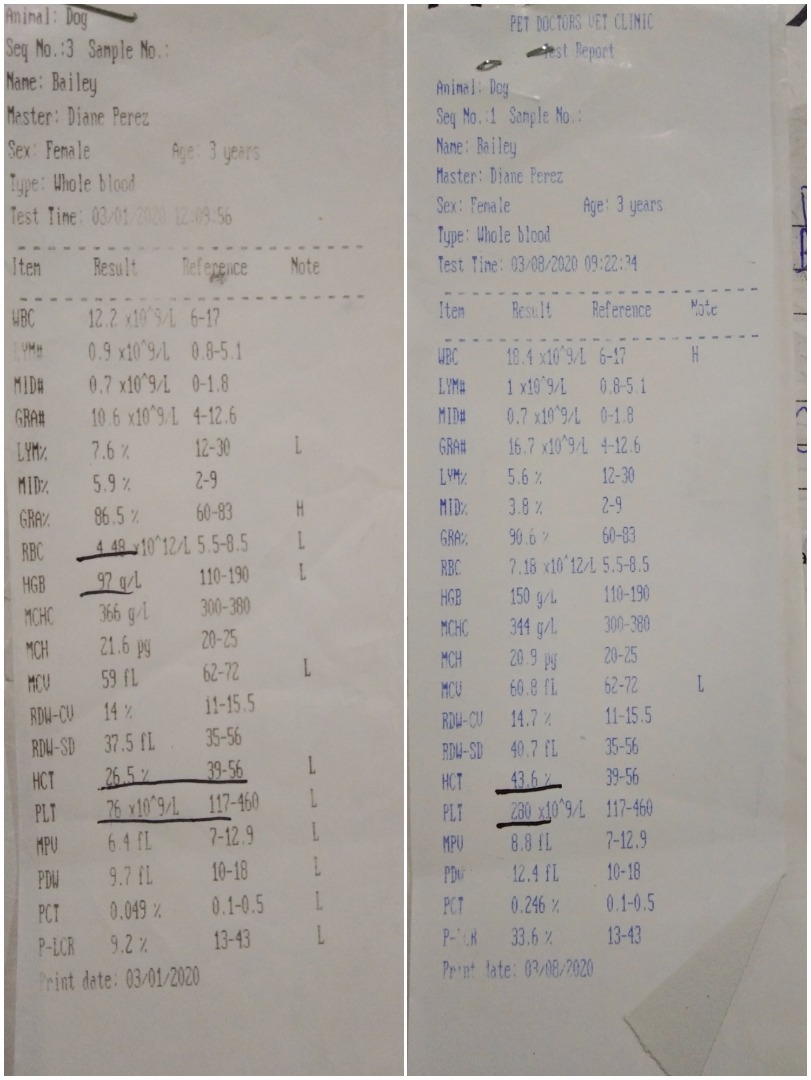 Animal: Dog
Seq No.:3 Sample No.:
Name: Bailey
Master: Diane Perez
Sex: Female Age: 3 years
Type: Whole blood
Test Time: 03/01/2020 12:09:56
Item Result Reference Note
WBC 12.2 x10^9/L 6-17
LYM# 0.9 x10^9/L 0.8-5.1
MID# 0.7 x10^9/L 0-1.8
GRA# 10.6 x10^9/L 4-12.6
LYM% 7.6 % 12-30 L
MID% 5.9 % 2-9
GRA% 86.5 % 60-83 H
RBC 4.48 x10^12/L 5.5-8.5 L
HGB 97 g/L 110-190 L
MCHC 366 g/L 300-380
MCH 21.6 pg 20-25
MCV 59 fL 62-72 L
RDW-CV 14 % 11-15.5
RDW-SD 37.5 fL 35-56
HCT 26.5 % 39-56 L
PLT 76 x10^9/L 117-460 L
MPV 6.4 fL 7-12.9 L
PDW 9.7 fL 10-18 L
PCT 0.049 % 0.1-0.5 L
P-LCR 9.2 % 13-43 L
Print date: 03/01/2020
PET DOCTORS VET CLINIC
Test Report
Animal: Dog
Seq No.:1 Sample No.:
Name: Bailey
Master: Diane Perez
Sex: Female Age: 3 years
Type: Whole blood
Test Time: 03/08/2020 09:22:34
Item Result Reference Note
WBC 18.4 x10^9/L 6-17 H
LYM# 1 x10^9/L 0.8-5.1
MID# 0.7 x10^9/L 0-1.8
GRA# 16.7 x10^9/L 4-12.6
LYM% 5.6 % 12-30
MID% 3.8 % 2-9
GRA% 90.6 % 60-83
RBC 7.18 x10^12/L 5.5-8.5
HGB 150 g/L 110-190
MCHC 344 g/L 300-380
MCH 20.9 pg 20-25
MCV 60.8 fL 62-72 L
RDW-CV 14.7 % 11-15.5
RDW-SD 40.7 fL 35-56
HCT 43.6 % 39-56
PLT 280 x10^9/L 117-460
MPV 8.8 fL 7-12.9
PDW 12.4 fL 10-18
PCT 0.246 % 0.1-0.5
P-LCR 33.6 % 13-43
Print date: 03/08/2020